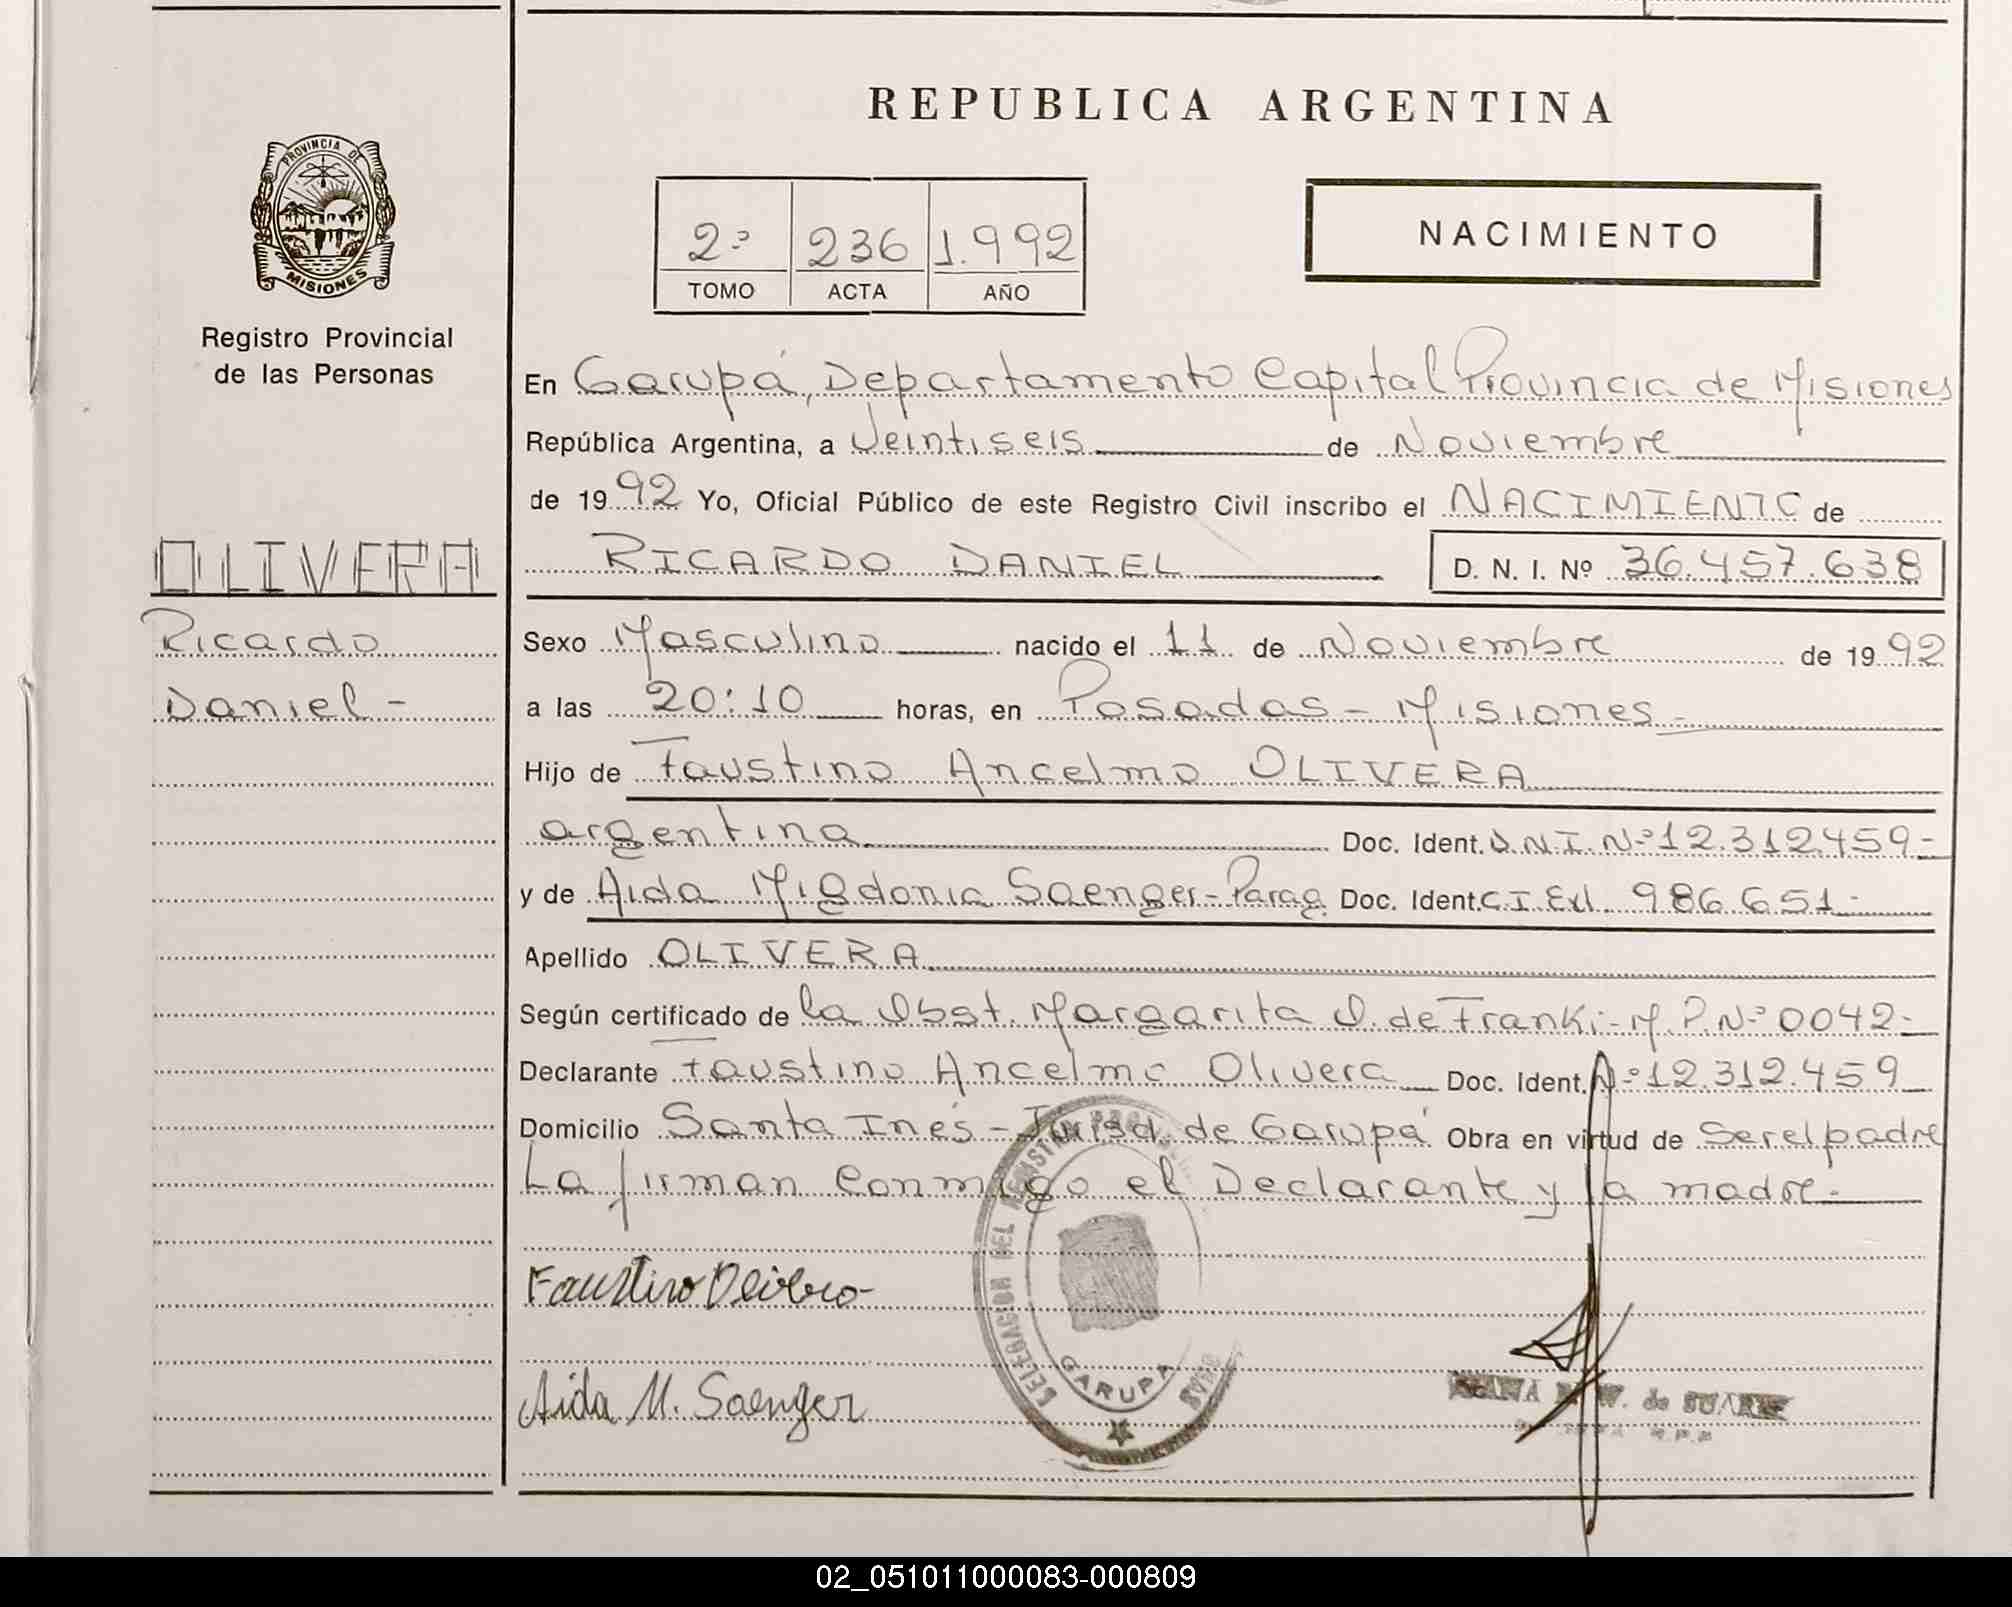 REPUBLICA ARGENTINA
PROVINCIA DE
MISIONES
Registro Provincial
de las Personas
2º 236 1.992
TOMO ACTA AÑO
NACIMIENTO
En Garupá, Departamento Capital Provincia de Misiones
República Argentina, a Veintiseis de Noviembre
de 1992 Yo, Oficial Público de este Registro Civil inscribo el NACIMIENTO de
RICARDO DANIEL D. N. I. Nº 36.457.638
OLIVERA
Ricardo
Daniel -
Sexo Masculino nacido el 11 de Noviembre de 1992
a las 20:10 horas, en Posadas - Misiones -
Hijo de Faustino Ancelmo OLIVERA
argentina Doc. Ident. D.N.I. Nº 12.312.459-
y de Aida Migdonia Saenger - Parag Doc. Ident. C.I. Ext. 986.651-
Apellido OLIVERA
Según certificado de la Obst. Margarita O. de Franki - M.P. Nº 0042-
Declarante Faustino Ancelmo Olivera Doc. Ident. Nº 12.312.459
Domicilio Santa Inés - Jurisd. de Garupá Obra en virtud de ser el padre
La firman conmigo el Declarante y la madre.-
Faustino Olivera
Aida M. Saenger
DELEGACION DEL REGISTRO
GARUPA
W. de SUAREZ
02_051011000083-000809